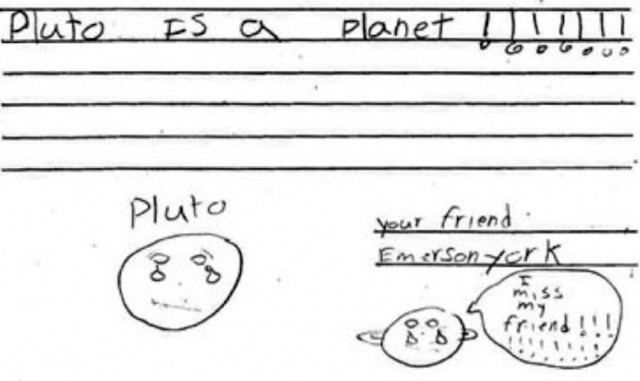 Pluto Is a planet !!!!!!!
Pluto
your friend
Emerson york
I
miss
my
friend !!!
!!!!!!!